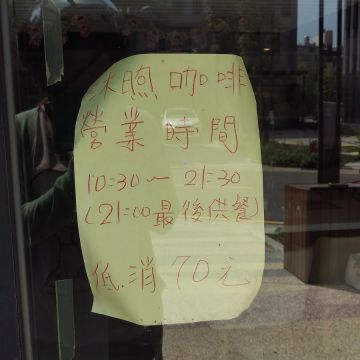 沐煦咖啡
營業時間
10:30 — 21:30
(21:00最後供餐)
低消70元